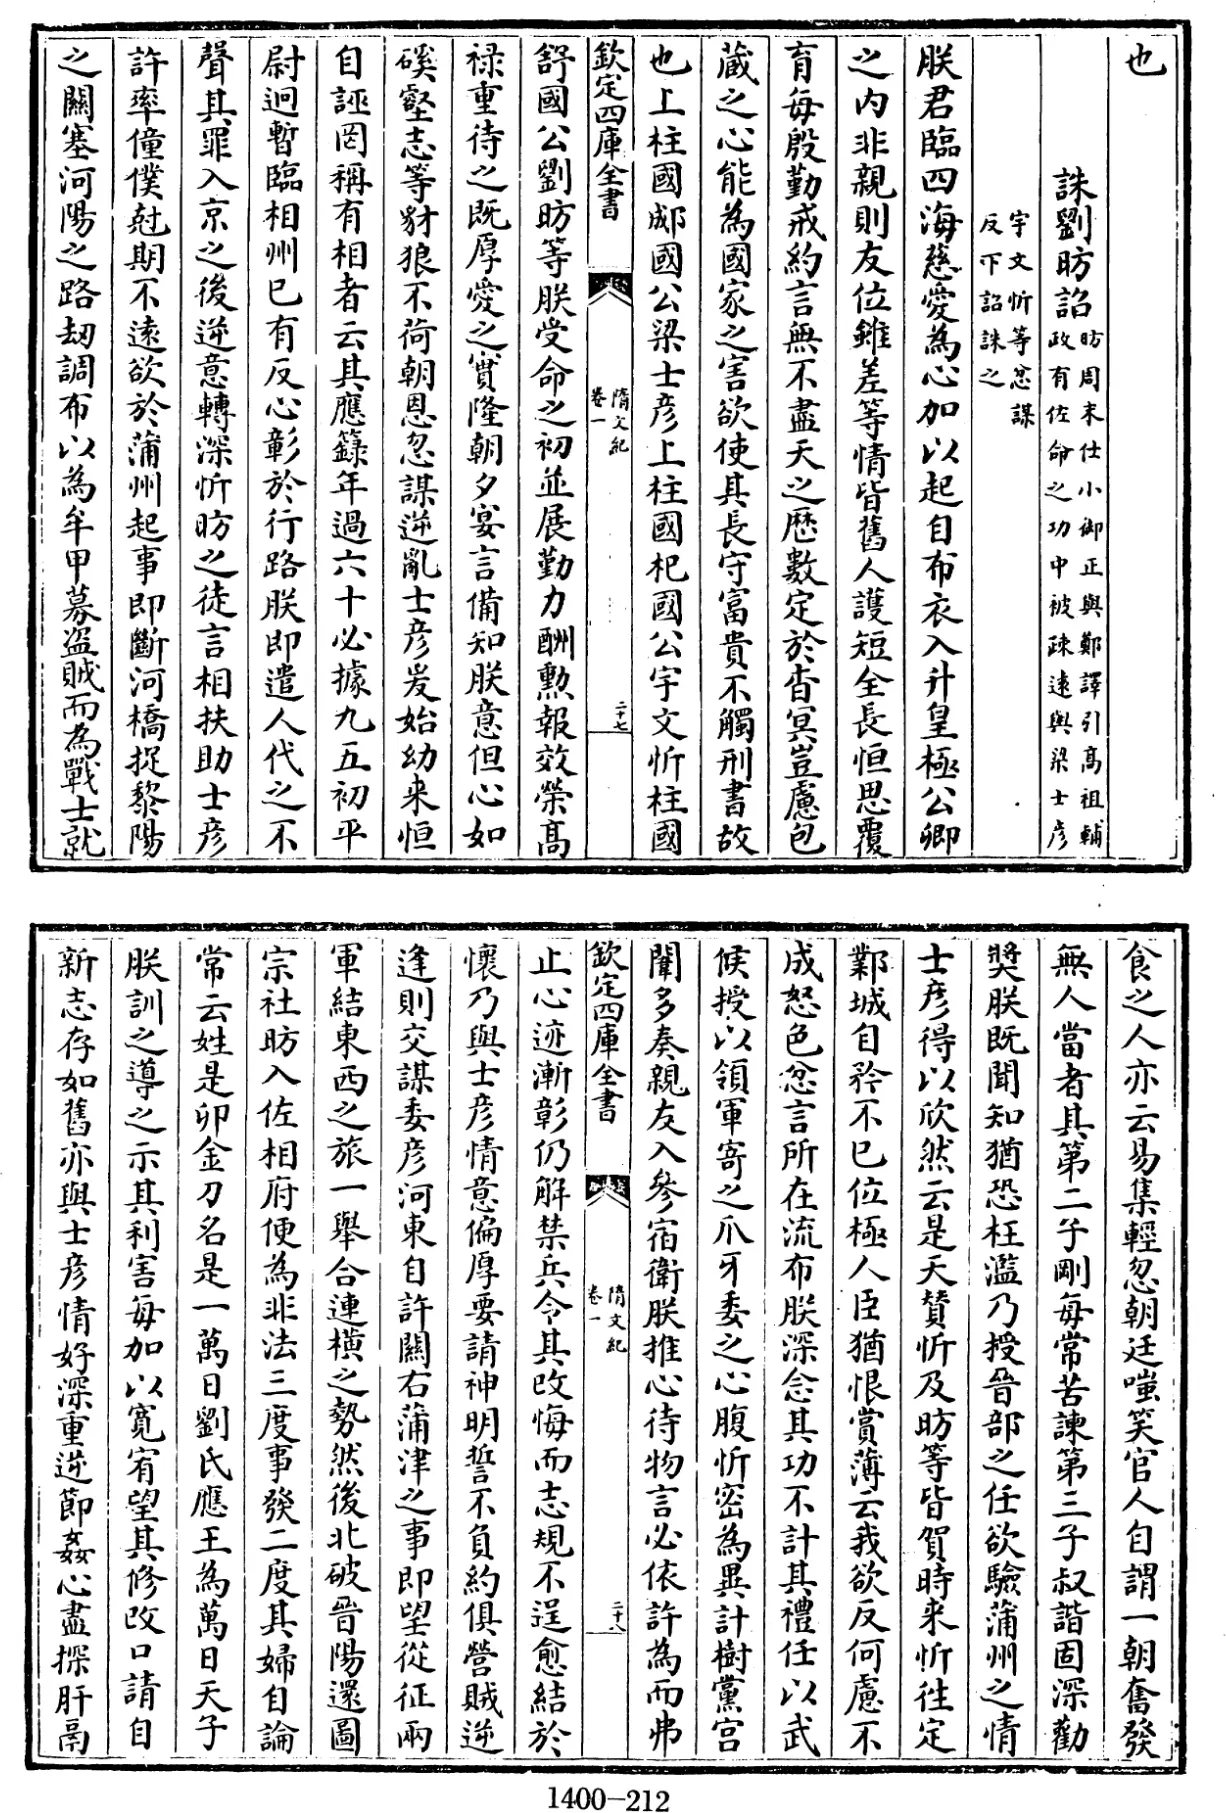 也
誅劉昉詔昉周末仕小御正與鄭譯引高祖輔
政有佐命之功中被疎逺與梁士彥
宇文忻等怱謀
反下詔誅之
朕君臨四海慈愛為心加以起自布衣入升皇極公卿
之内非親則友位雖差等情皆舊人護短全長恒思覆
育每殷勤戒約言無不盡天之厯數定於杳冥豈慮包
藏之心能為國家之害欲使其長守富貴不觸刑書故
也上柱國郕國公梁士彥上柱國杞國公宇文忻柱國
欽定四庫全書
隋文紀
卷一
二十七
舒國公劉昉等朕受命之初並展勤力酬勲報效榮髙
禄重待之既厚愛之實隆朝夕宴言備知朕意但心如
磎壑志等豺狼不荷朝恩忽謀逆亂士彥爰始幼来恒
自誣罔稱有相者云其應籙年過六十必據九五初平
尉迥暫臨相州已有反心彰於行路朕即遣人代之不
聲其罪入京之後逆意轉深忻昉之徒言相扶助士彥
許率僮僕尅期不逺欲於蒲州起事即斷河橋捉黎陽
之關塞河陽之路刼調布以為牟甲募盗賊而為戰士就
食之人亦云易集輕忽朝廷嗤笑官人自謂一朝奮發
無人當者其第二子剛每常苦諫第三子叔諧固深勸
奬朕既聞知猶恐枉濫乃授晉部之任欲驗蒲州之情
士彥得以欣然云是天贊忻及昉等皆賀時来忻徃定
鄴城自矜不已位極人臣猶恨賞薄云我欲反何慮不
成怒色忿言所在流布朕深念其功不計其禮任以武
候授以領軍寄之爪牙委之心腹忻宻為異計樹黨宫
闈多奏親友入參宿衛朕推心待物言必依許為而弗
欽定四庫全書
隋文紀
卷一
二十八
止心迹漸彰仍解禁兵令其改悔而志規不逞愈結於
懷乃與士彥情意偏厚要請神明誓不負約俱營賊逆
逢則交謀委彥河東自許關右蒲津之事即望從征兩
軍結東西之旅一舉合連横之勢然後北破晉陽還圖
宗社昉入佐相府便為非法三度事發二度其婦自論
常云姓是卯金刀名是一萬日劉氏應王為萬日天子
朕訓之導之示其利害每加以寛宥望其修改口請自
新志存如舊亦與士彥情好深重逆節姦心盡探肝鬲
1400-212